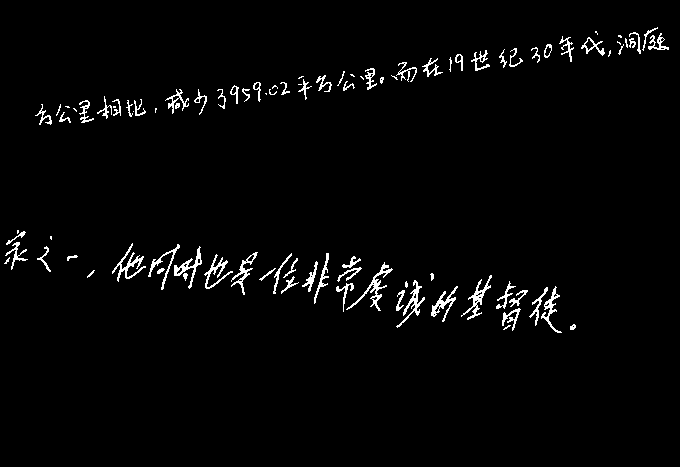 方公里相比，减少了959.02平方公里。而在19世纪30年代，洞庭
家之一，他同时也是一位非常虔诚的基督徒。